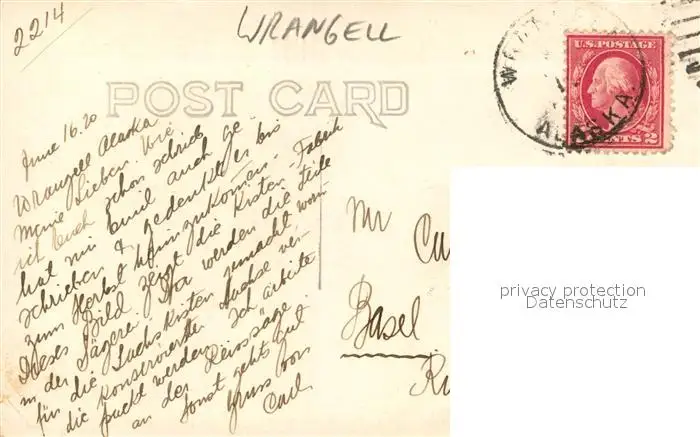 2214
WRANGELL
POST CARD
U.S. POSTAGE
CENTS 2
ALASKA
June 16. 20
Wrangell Alaska
Meine Lieben. Wie
ich Euch schon schrieb
hat mir Emil auch ge-
schrieben & gedenkt er bis
zum Herbst heimzukommen.
Dieses Bild zeigt die Kisten-Fabrik
in der Sägerei. Da werden die Teile
für die Lachskisten gemacht worin
die konservierten Lachse ver-
packt werden. Ich arbeite
an der Reissäge.
Sonst gehts gut
Gruss von
Carl.
Mr
Basel
privacy protection
Datenschutz